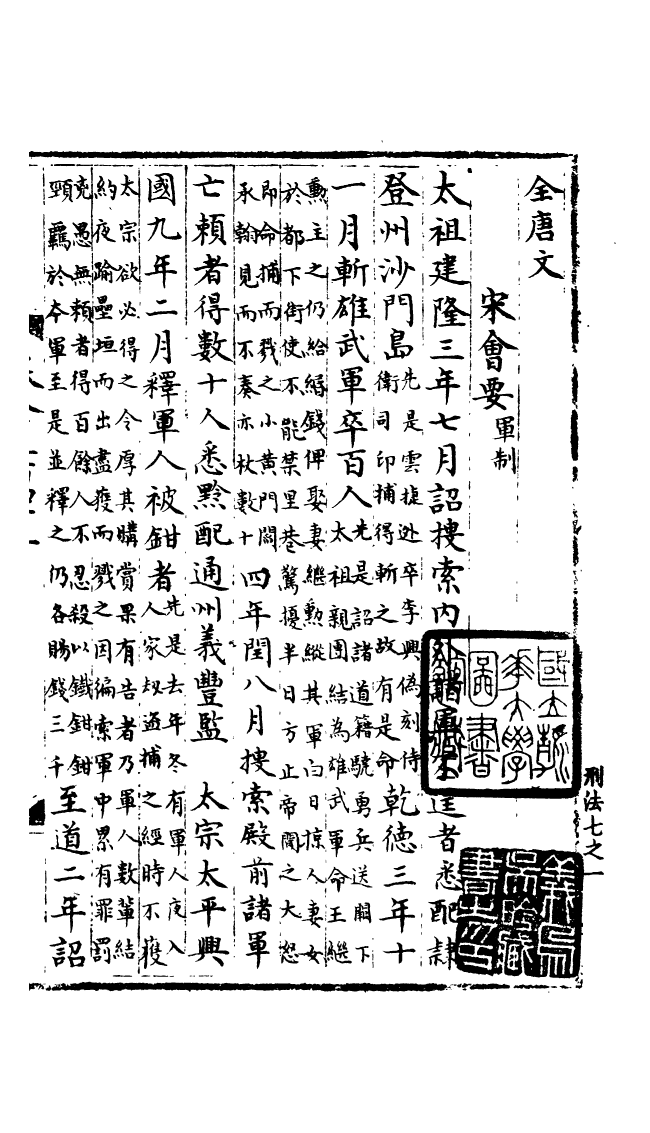 全唐文
宋會要 軍制
太祖建隆三年七月詔搜索內外諸軍不逞者悉配隸
登州沙門島 先是雲捷逃卒李興偽刻侍
衛司印捕得斬之故有是命 乾德三年十
一月斬雄武軍卒百人 先是詔諸道籍驍勇兵送闕下
太祖親團結為雄武軍命王繼
勳主之仍給緡錢俾娶妻繼勳縱其軍白日掠人妻女
於都下街使不能禁里巷驚擾半日方止帝聞之大怒
即命捕而戮之小黃門閻
承翰見而不奏亦杖數十 四年閏八月搜索殿前諸軍
亡賴者得數十人悉黥配通州義豐監 太宗太平興
國九年二月釋軍人被鉗者 先是去年冬有軍人夜入
人家刼盜捕之經時不獲
太宗欲必得之令厚其購賞果有告者乃軍人數輩結
約夜踰壘垣而出盡獲而戮之因徧索軍中累有罪罰
兇愚無賴者得百餘人不忍殺以鐵鉗鉗
頸羈於本軍至是並釋之仍各賜錢三千 至道二年詔
刑法七之一